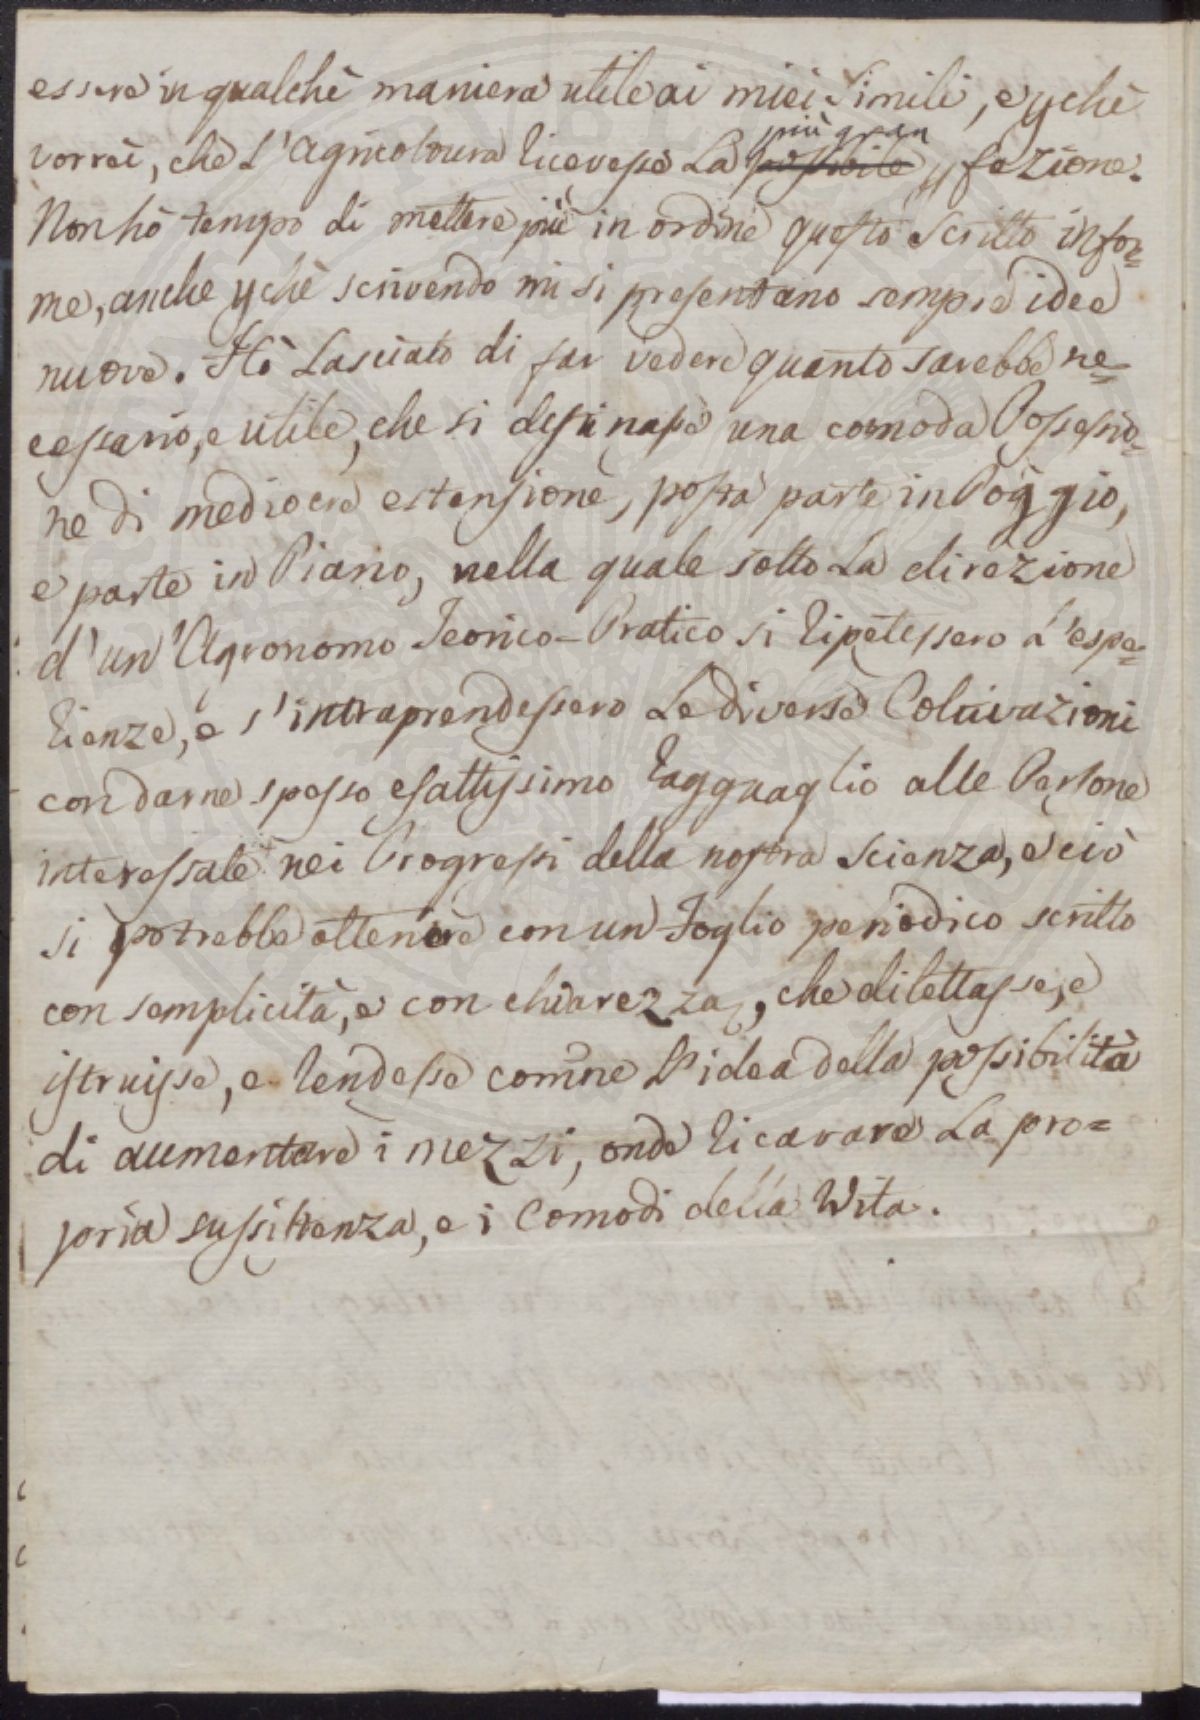 essere in qualchè maniera utile ai miei simili, e pchè
vorrei, chè L'Agricoltura ricevesse La possibile più gran pfezione.
Non hò tempo di mettere più in ordine questo scritto infor=
me, anche pchè scrivendo mi si presentano sempre idee
nuove. Hò Lasciato di far vedere quanto sarebbe ne=
cessario, e utile, che si destinasse una comoda Possessio=
ne di mediocre estensione, posta parte in Poggio,
e parte in Piano, nella quale sotto La direzione
d'un'Agronomo Teorico-Pratico si ripetessero L'espe=
rienze, e s'intraprendessero Le diverse Coltivazioni
con darne spesso esattissimo ragguaglio alle Persone
interessate nei Progressi della nostra scienza, e ciò
si potrebbe ottenere con un Foglio periodico scritto
con semplicità, e con chiarezza, che dilettasse, e
istruisse, e rendesse comune L'idea della possibilità
di aumentare i mezzi, onde ricavare La pro=
pria sussistenza, e i Comodi della Vita.